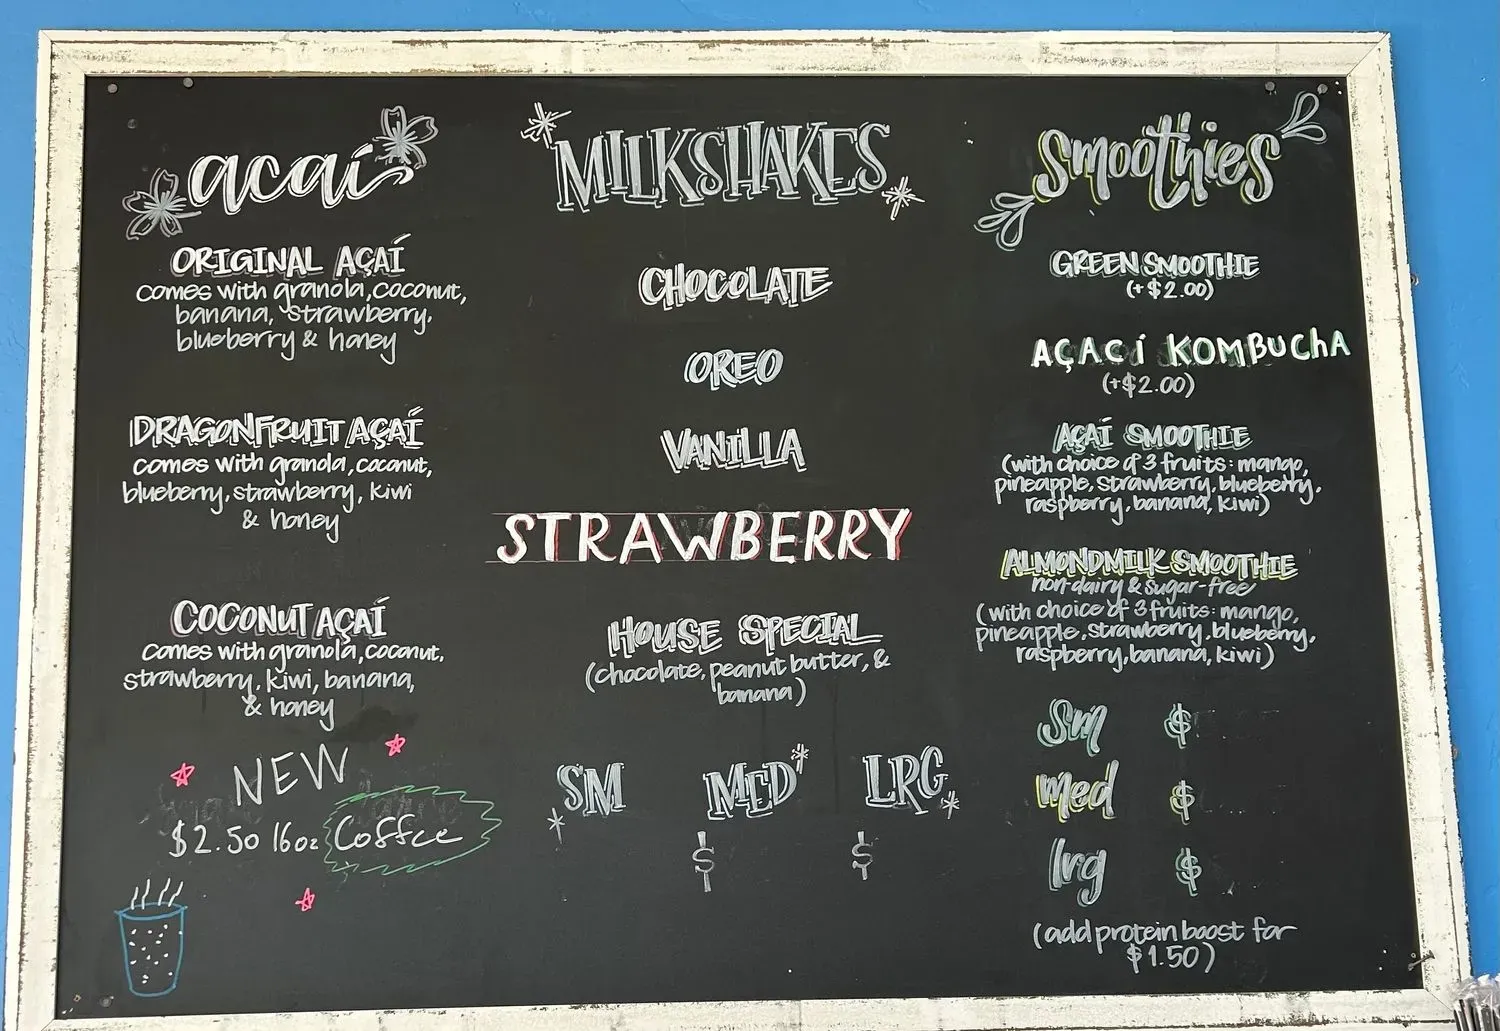 acaí
ORIGINAL AÇAÍ
comes with granola, coconut,
banana, strawberry,
blueberry & honey
DRAGONFRUIT AÇAÍ
comes with granola, coconut,
blueberry, strawberry, kiwi
& honey
COCONUT AÇAÍ
comes with granola, coconut,
strawberry, kiwi, banana,
& honey
NEW
$2.50 16oz Coffee
MILKSHAKES
CHOCOLATE
OREO
VANILLA
STRAWBERRY
HOUSE SPECIAL
(chocolate, peanut butter, &
banana)
SM MED LRG
$ $
smoothies
GREEN SMOOTHIE
(+$2.00)
AÇACÍ KOMBUCHA
(+$2.00)
AÇAÍ SMOOTHIE
(with choice of 3 fruits: mango,
pineapple, strawberry, blueberry,
raspberry, banana, kiwi)
ALMONDMILK SMOOTHIE
non-dairy & sugar-free
(with choice of 3 fruits: mango,
pineapple, strawberry, blueberry,
raspberry, banana, kiwi)
sm $
med $
lrg $
(add protein boost for
$1.50)